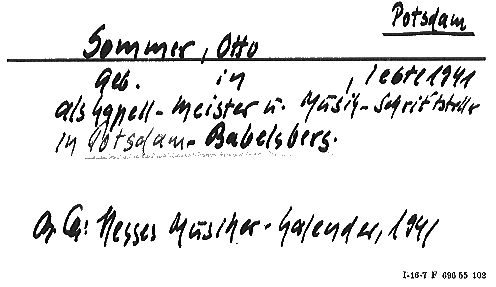 Potsdam
Sommer, Otto
geb. in , lebte 1941
als Kapell-meister u. Musik-Schriftsteller
in Potsdam-Babelsberg.
Hesses Musiker-Kalender, 1941
I-16-7 F 696 55 102